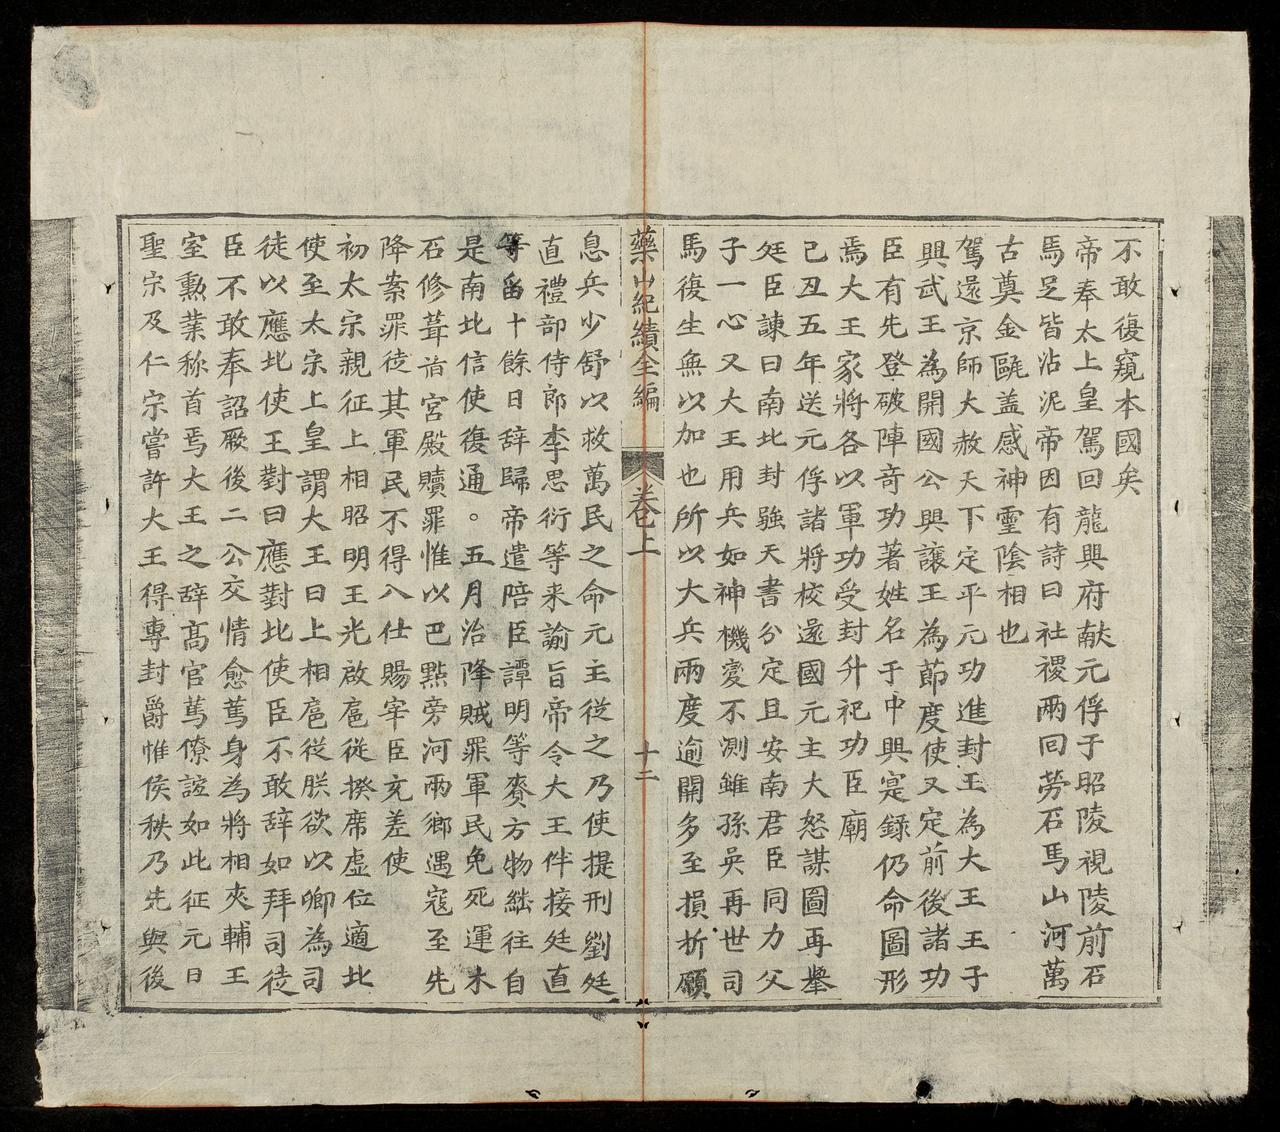 不敢復窺本國矣
帝奉太上皇駕回龍興府献元俘于昭陵視陵前石
馬足皆沾泥帝因有詩曰社禝兩回劳石馬山河萬
古奠金甌盖感神𤫊陰相也
駕還京師大赦天下定平元功進封王為大王王子
興武王為開國公興讓王為節度使又定前後諸功
臣有先登破陣奇功著姓名于中興寔録仍命圖形
焉大王家將各以軍功受封升祀功臣廟
己丑五年送元俘諸將校還國元主大怒謀圖再舉
廷臣諫曰南北封疆天書分定且安南君臣同力父
子一心又大王用兵如神機變不測雖孫吳再世司
馬復生無以加也所以大兵兩度逾關多至損折願
藥山紀績全編 卷上 十二
息兵少舒以救萬民之命元主従之乃使提刑劉廷
直禮部侍郎李思衍等来諭旨帝令大王伴接廷直
等留十餘日辞歸帝遣陪臣譚明等赍方物継往自
是南北信使復通。五月治降賊罪軍民免死運木
石修葺诸宮殿贖罪惟以巴點旁河兩鄉遇寇至先
降案罪徒其軍民不得入仕賜宰臣充差使
初太宗親征上相昭明王光啟扈從揆席虛位適北
使至太宗上皇謂大王曰上相扈従朕欲以卿為司
徒以應北使王對曰應對北使臣不敢辞如拜司徒
臣不敢奉詔厥後二公交情愈篤身為將相夾輔王
室勲業称首焉大王之辞髙官篤僚誼如此征元日
聖宗及仁宗嘗許大王得專封爵惟侯秩乃先與後